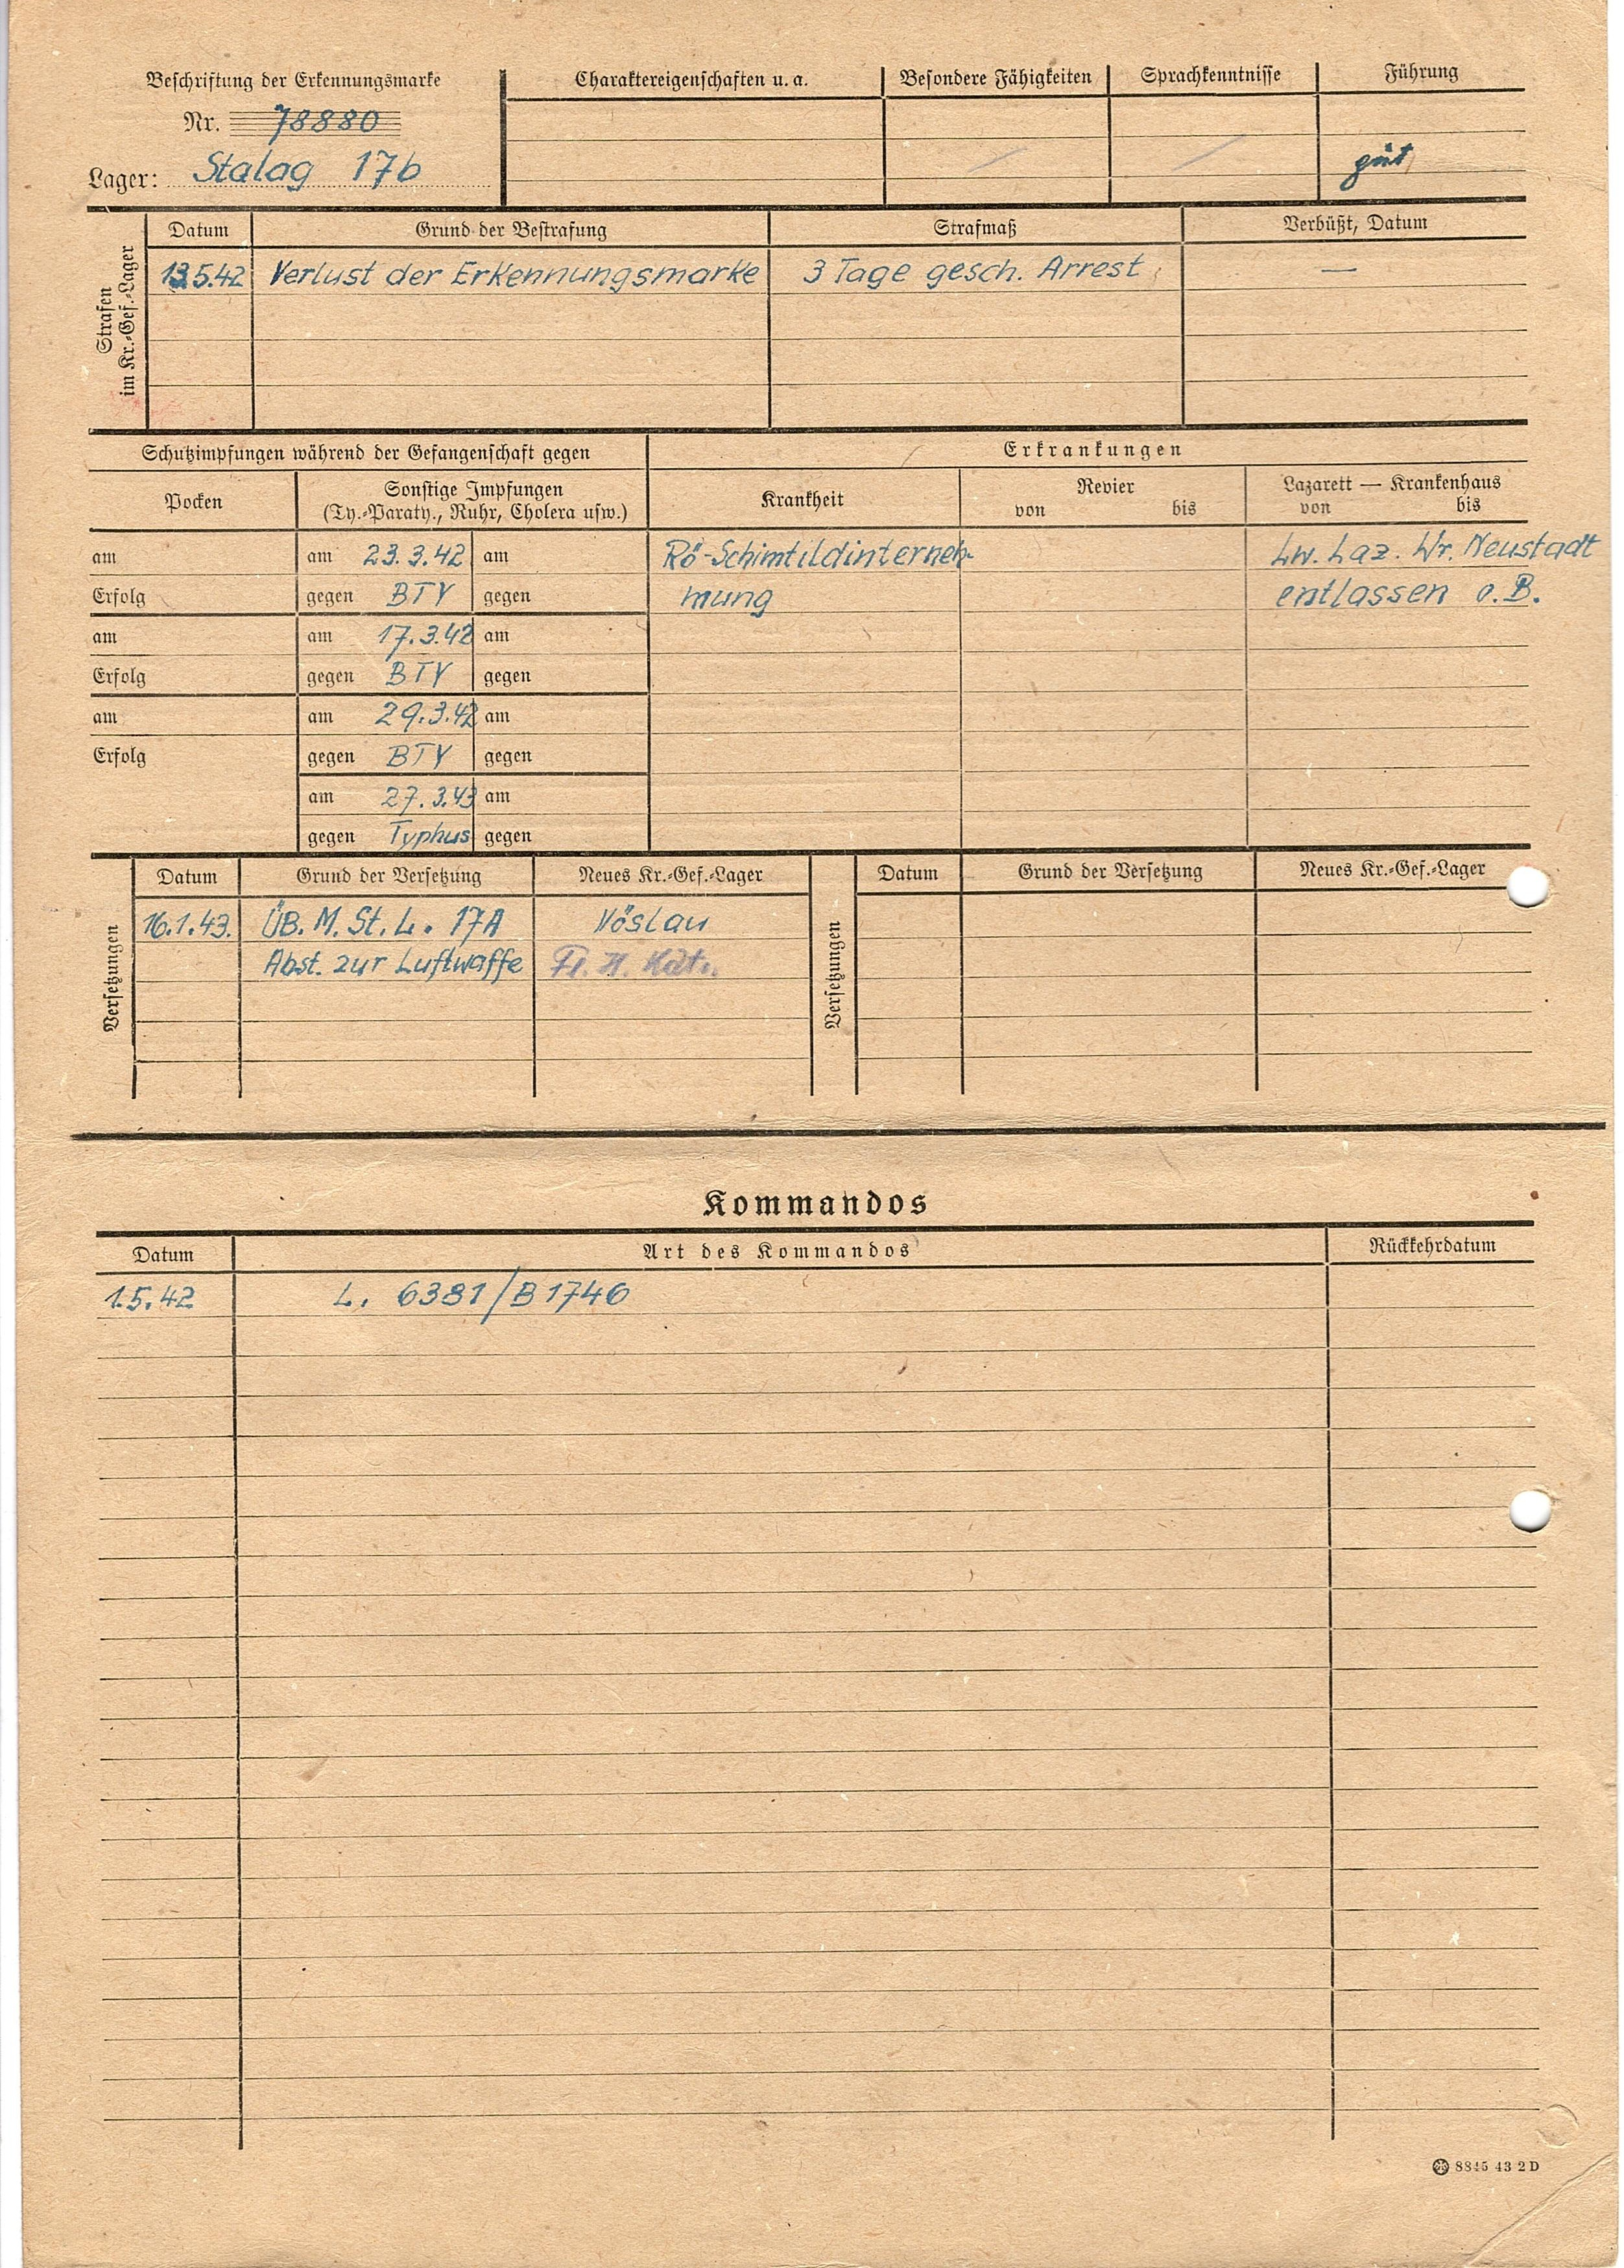 Beschriftung der Erkennungsmarke
Nr. 78880
Lager: Stalag 17b
Charaktereigenschaften u. a. Besondere Fähigkeiten Sprachkenntnisse Führung
gut
Strafen
im Kr.-Gef.-Lager
Datum Grund der Bestrafung Strafmaß Verbüßt, Datum
13.5.42 Verlust der Erkennungsmarke 3 Tage gesch. Arrest —
Schutzimpfungen während der Gefangenschaft gegen
Pocken
Sonstige Impfungen
(Ty.-Paraty., Ruhr, Cholera usw.)
am am 23.3.42 am
Erfolg gegen BTY gegen
am am 17.3.42 am
Erfolg gegen BTY gegen
am am 29.3.42 am
Erfolg gegen BTY gegen
am 27.3.43 am
gegen Typhus gegen
Erkrankungen
Krankheit
Revier
von bis
Lazarett — Krankenhaus
von bis
Lw. Laz. Wr. Neustadt
mung entlassen o.B.
Versetzungen
Datum Grund der Versetzung Neues Kr.-Gef.-Lager
16.1.43. ÜB. M. St. L. 17A Vöslau
Abst. zur Luftwaffe
Versetzungen
Datum Grund der Versetzung Neues Kr.-Gef.-Lager
Kommandos
Datum Art des Kommandos Rückkehrdatum
1.5.42 L. 6381/B1746
8845 43 2 D